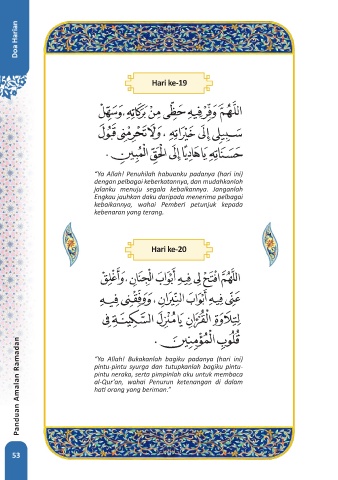 Doa Harian
Hari ke-19
اَللّٰهُمَّ وَفِّرْ فِيهِ حَظِّى مِنْ بَرَكَاتِهِ، وَسَهِّلْ
سَبِيلِى إِلَى خَيْرَاتِهِ، وَلَا تَحْرِمْنِى قَبُولَ
حَسَنَاتِهِ يَا هَادِيًا إِلَى الْحَقِّ الْمُبِينِ.
"Ya Allah! Penuhilah habuanku padanya (hari ini)
dengan pelbagai keberkatannya, dan mudahkanlah
jalanku menuju segala kebaikannya. Janganlah
Engkau jauhkan daku daripada menerima pelbagai
kebaikannya, wahai Pemberi petunjuk kepada
kebenaran yang terang.
Hari ke-20
اَللّٰهُمَّ افْتَحْ لِى فِيهِ أَبْوَابَ الْجِنَانِ، وَأَغْلِقْ
عَنِّى فِيهِ أَبْوَابَ النِّيرَانِ، وَوَفِّقْنِى فِيهِ
لِتِلَاوَةِ الْقُرْآنِ يَا مُنْزِلَ السَّكِينَةِ فِى
قُلُوبِ الْمُؤْمِنِينَ.
"Ya Allah! Bukakanlah bagiku padanya (hari ini)
pintu-pintu syurga dan tutupkanlah bagiku pintu-
pintu neraka, serta pimpinlah aku untuk membaca
al-Qur'an, wahai Penurun ketenangan di dalam
hati orang yang beriman."
Panduan Amalan Ramadan
53